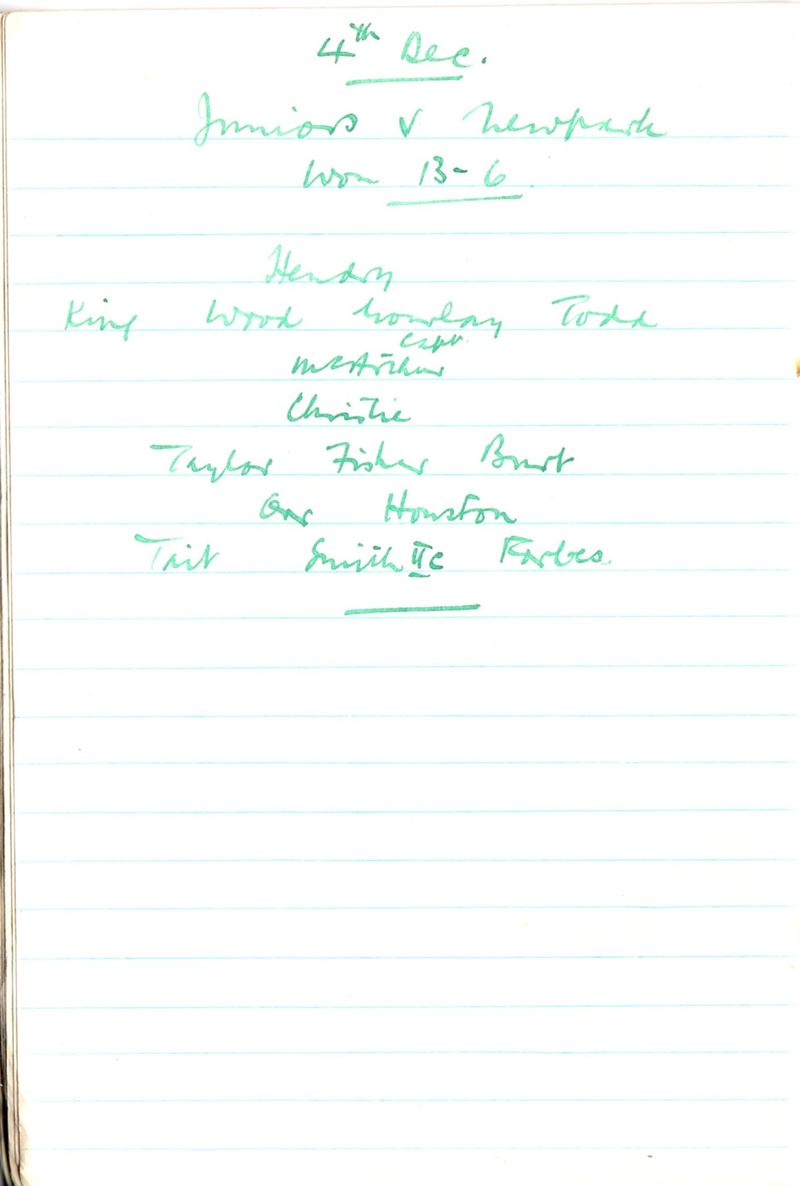 4th Dec.
Juniors v Newpark
Won 13-6
Hendry
King Wood Todd
Capt.
McArthur
Christie
Taylor Fisher Burt
Orr Houston
Tait Smith IIc Forbes